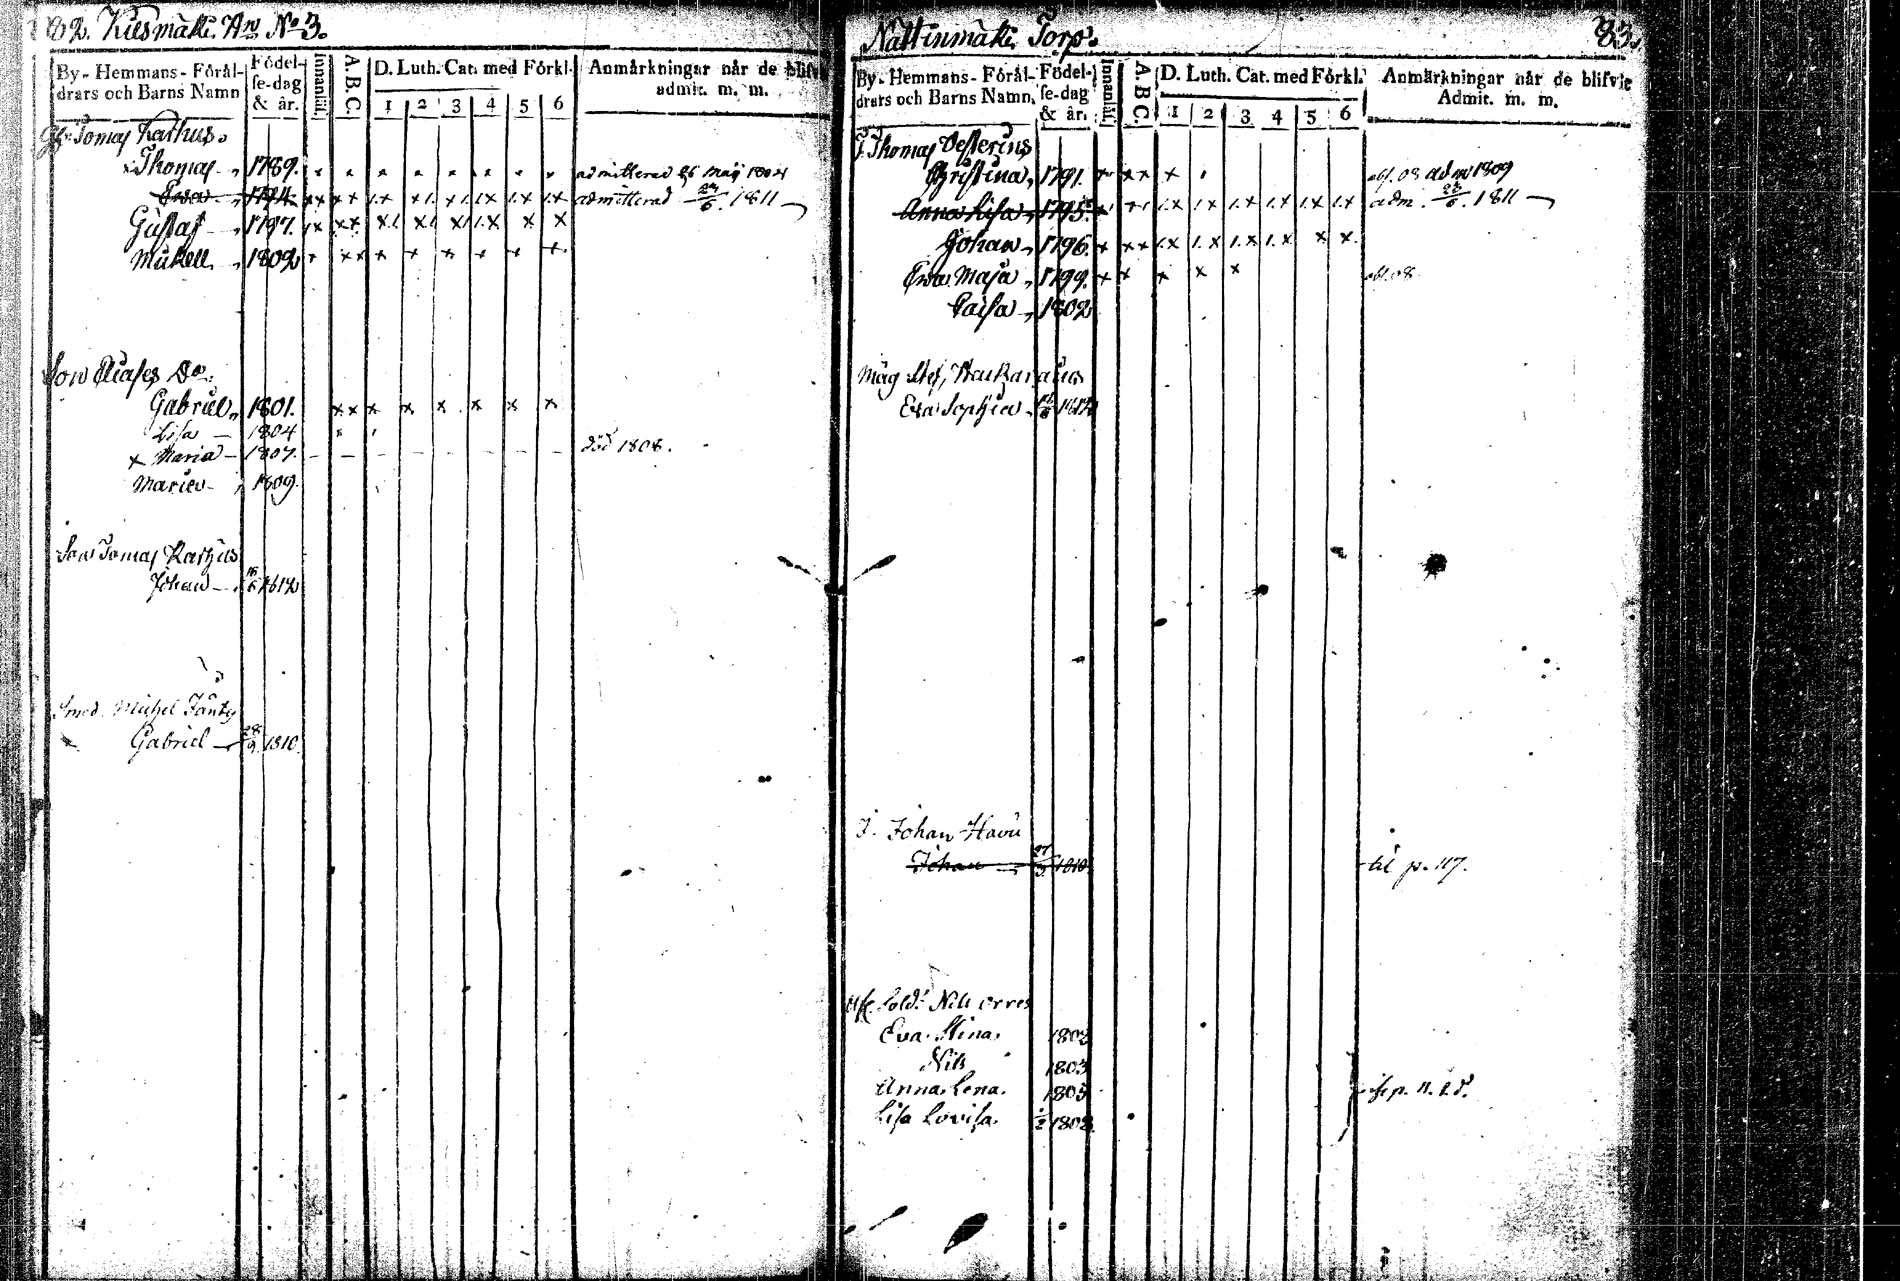 82. Kiesmäki. An No 3.
By- Hemmans- Föräl-
drars och Barns Namn
Födel-
se-dag
& år.
Innanläs.
A. B. C.
D. Luth. Cat. med Förkl.
1 2 3 4 5 6
Anmärkningar når de blifv
admit. m. m.
Tomas Karhus.
Thomas 1789. admitterad 26 Maij 1804
Ewa 1794. x x x x 1.x x 1. x 1. 1.x 1.x 1.x admitterad 23/6. 1811
Gustaf 1797. 1x x x. x 1. x 1. x 1. 1.x x x
Mickell 1802 x x x x x x x x x
Son Eliases Do.
Gabriel 1801. x x x x x x x x
Lisa 1804
x Maria 1807. död 1808.
Maria 1809.
Son Tomas Karhus
Johan 1812
Smed. Michel
Gabriel 28/9. 1810.
Nattinmäki Torp.
83.
By- Hemmans- Föräl-
drars och Barns Namn.
Födel-
se-dag
& år.
Innanläs.
A B C.
D. Luth. Cat. med Förkl.
1 2 3 4 5 6
Anmärkningar når de blifvit
Admit. m. m.
Thomas Vesterius
Christina 1791. x x x x abs. 08 adm 1809
Anna Lisa 1795 1.x 1.x 1.x 1.x 1.x 1.x adm. 23/6. 1811
Johan 1796. x x x 1.x 1.x 1.x 1.x x x
Ewa Maja 1799. x x x x x abs. 08
Caisa 1802
Måg
Eva Sophia 1812
J. Johan Havu
Johan 27/3 1810 til p. 117.
Sold. Nils Orres
Eva Stina. 1802
Nils 1803
Anna Lena. 1805
Lisa Lovisa. 1808.